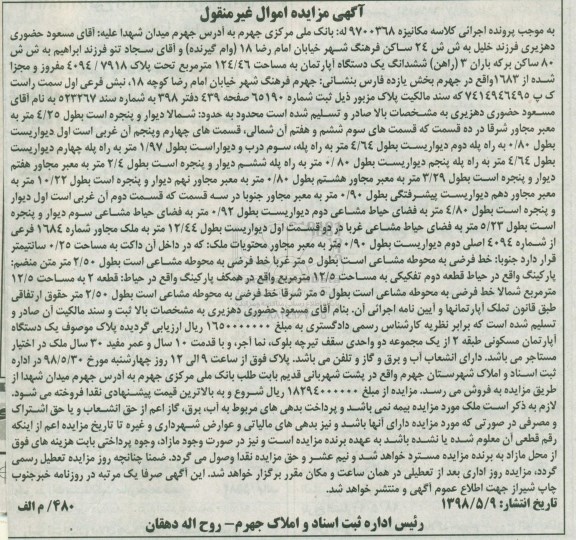 آگهی مزایده اموال غیرمنقول
به موجب پرونده اجرائی کلاسه مکانیزه ۹۷۰۰۳۶۸ له: بانک ملی مرکزی جهرم به آدرس جهرم میدان شهدا علیه: آقای مسعود حضوری
دهزیری فرزند خلیل به ش ش ۲۴ ساکن فرهنگ شهر خیابان امام رضا ۱۸ (وام گیرنده) و آقای سجاد تنو فرزند ابراهیم به ش ش
۸۰ ساکن برکه باران ۳ (راهن) ششدانگ یک دستگاه آپارتمان به مساحت ۱۲۴/۴۶ مترمربع تحت پلاک ۷۹۱۸ / ۴۰۹۴ مفروز و مجزا
شده از ۱۶۸۳ واقع در جهرم بخش یازده فارس بنشانی: جهرم فرهنگ شهر خیابان امام رضا کوچه ۱۸، نبش فرعی اول سمت راست
ک پ ۷۴۱۴۹۴۶۴۹۵ که سند مالکیت پلاک مزبور ذیل ثبت شماره ۶۵۱۹۰ صفحه ۴۳۹ دفتر ۳۹۸ به شماره سند ۵۲۲۲۶۷ به نام آقای
مسعود حضوری دهزیری به مشخصات بالا صادر و تسلیم شده است محدود به حدود: شمالا دیوار و پنجره است بطول ۴/۲۵ متر به
معبر مجاور شرقا در ده قسمت که قسمت های سوم ششم و هفتم آن شمالی، قسمت های چهارم وپنجم آن غربی است اول دیواریست
بطول ۰/۸۰ به راه پله دوم دیواریست بطول ۴/۶۴ متر به راه پله، سوم درب و دیواراست بطول ۱/۹۷ متر به راه پله چهارم دیواریست
بطول ۴/۶۴ متر به راه پله پنجم دیواریست بطول ۰/۸۰ متر به راه پله ششم دیوار و پنجره است بطول ۲/۴ متر به معبر مجاور هفتم
دیوار و پنجره است بطول ۳/۲۹ متر به معبر مجاور هشتم بطول ۰/۸۰ متر به معبر مجاور نهم دیوار و پنجره است بطول ۱۰/۲۲ متر به
معبر مجاور دهم دیواریست پیشرفتگی بطول ۰/۹۰ متر به معبر مجاور جنوبا در سه قسمت که قسمت دوم آن غربی است اول دیوار
و پنجره است بطول ۴/۸۰ متر به فضای حیاط مشاعی دوم دیواریست بطول ۰/۹۲ متر به فضای حیاط مشاعی سوم دیوار و پنجره
است بطول ۵/۲۳ متر به فضای حیاط مشاعی غربا در دو قسمت اول دیواریست بطول ۱۲/۴۴ متر به ملک مجاور شماره ۱۶۸۴ فرعی
از شماره ۴۰۹۴ اصلی دوم دیواریست بطول ۰/۹۰ متر به معبر مجاور محتویات ملک: که در داخل آن داکت به مساحت ۰/۲۵ سانتیمتر
قرار دارد جنوبا: خط فرضی به محوطه مشاعی است بطول ۵ متر غربا خط فرضی به محوطه مشاعی است بطول ۲/۵۰ متر متن منضم:
پارکینگ واقع در حیاط قطعه دوم تفکیکی به مساحت ۱۲/۵ مترمربع واقع در همکف پارکینگ واقع در حیاط: قطعه ۲ به مساحت ۱۲/۵
مترمربع شمالا خط فرضی به محوطه مشاعی است بطول ۵ متر شرقا خط فرضی به محوطه مشاعی است بطول ۲/۵۰ متر حقوق ارتفاقی
طبق قانون تملک آپارتمانها و آیین نامه اجرائی آن. بنام آقای مسعود حضوری دهزیری به مشخصات بالا ثبت و سند مالکیت آن صادر و
تسلیم شده است که برابر نظریه کارشناس رسمی دادگستری به مبلغ ۱۶۵۰۰۰۰۰۰۰ ریال ارزیابی گردیده پلاک موصوف یک دستگاه
آپارتمان مسکونی طبقه ۲ از یک مجموعه دو واحدی سقف تیرچه بلوک، نما آجر، و با قدمت ۱۰ سال و عمر مفید ۳۰ سال ملک در اختیار
مستاجر می باشد. دارای انشعاب آب و برق و گاز و تلفن می باشد. پلاک فوق از ساعت ۹ الی ۱۲ روز چهارشنبه مورخ ۹۸/۵/۳۰ در اداره
ثبت اسناد و املاک شهرستان جهرم واقع در پشت شهربانی قدیم بابت طلب بانک ملی مرکزی جهرم به آدرس جهرم میدان شهدا از
طریق مزایده به فروش می رسد. مزایده از مبلغ ۱۸۲۹۴۰۰۰۰۰۰ ریال شروع و به بالاترین قیمت پیشنهادی نقدا فروخته می شود.
لازم به ذکر است ملک مورد مزایده بیمه نمی باشد و پرداخت بدهی های مربوط به آب، برق، گاز اعم از حق انشعاب و یا حق اشتراک
و مصرفی در صورتی که مورد مزایده دارای آنها باشد و نیز بدهی های مالیاتی و عوارض شهرداری و غیره تا تاریخ مزایده اعم از اینکه
رقم قطعی آن معلوم شده یا نشده باشد به عهده برنده مزایده است و نیز در صورت وجود مازاد، وجوه پرداختی بابت هزینه های فوق
از محل مازاد به برنده مزایده مسترد خواهد شد و نیم عشر و حق مزایده نقدا وصول می گردد. ضمنا چنانچه روز مزایده تعطیل رسمی
گردد، مزایده روز اداری بعد از تعطیلی در همان ساعت و مکان مقرر برگزار خواهد شد. این آگهی صرفا یک مرتبه در روزنامه خبرجنوب
چاپ شیراز جهت اطلاع عموم آگهی و منتشر خواهد شد.
تاریخ انتشار: ۱۳۹۸/۵/۹
۴۸۰/ م الف
رئیس اداره ثبت اسناد و املاک جهرم – روح اله دهقان